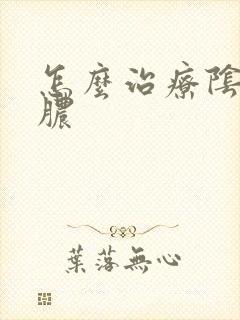 怎麼治療陰
膿
葉落無心